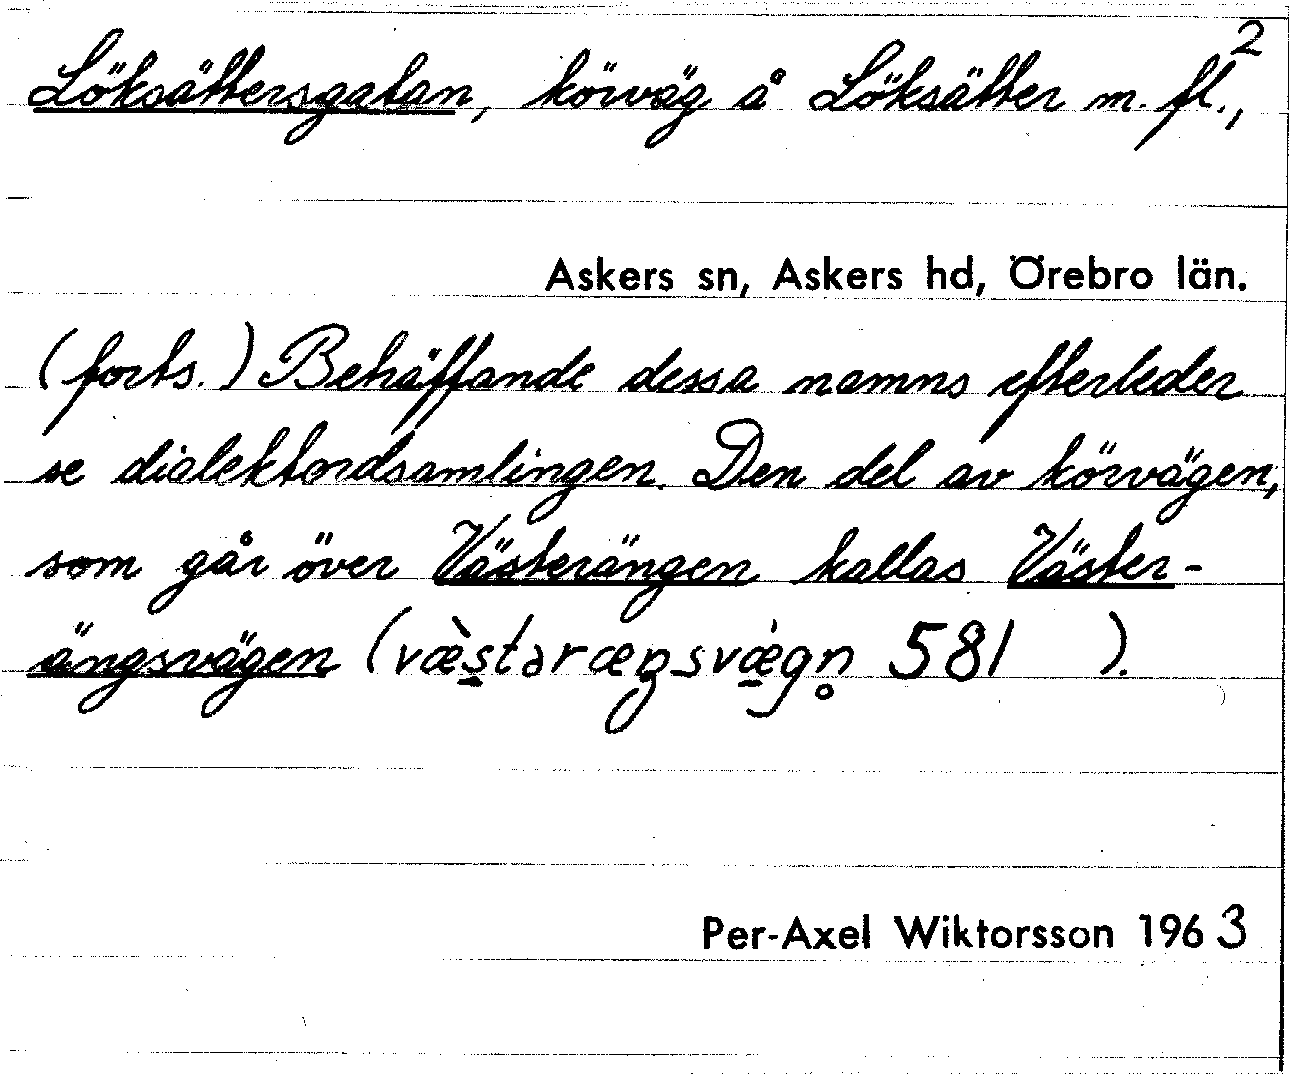 2
Löksättersgatan, körväg å Löksätter m. fl.,
Askers sn, Askers hd, Örebro län.
(forts.) Behäffande dessa namns efterleder
se dialektordsamlingen. Den del av körvägen,
som går över Västerängen kallas Väster-
ängsvägen (væ̀stəræŋsvæ̀gn̥ 581 ).
Per-Axel Wiktorsson 1963